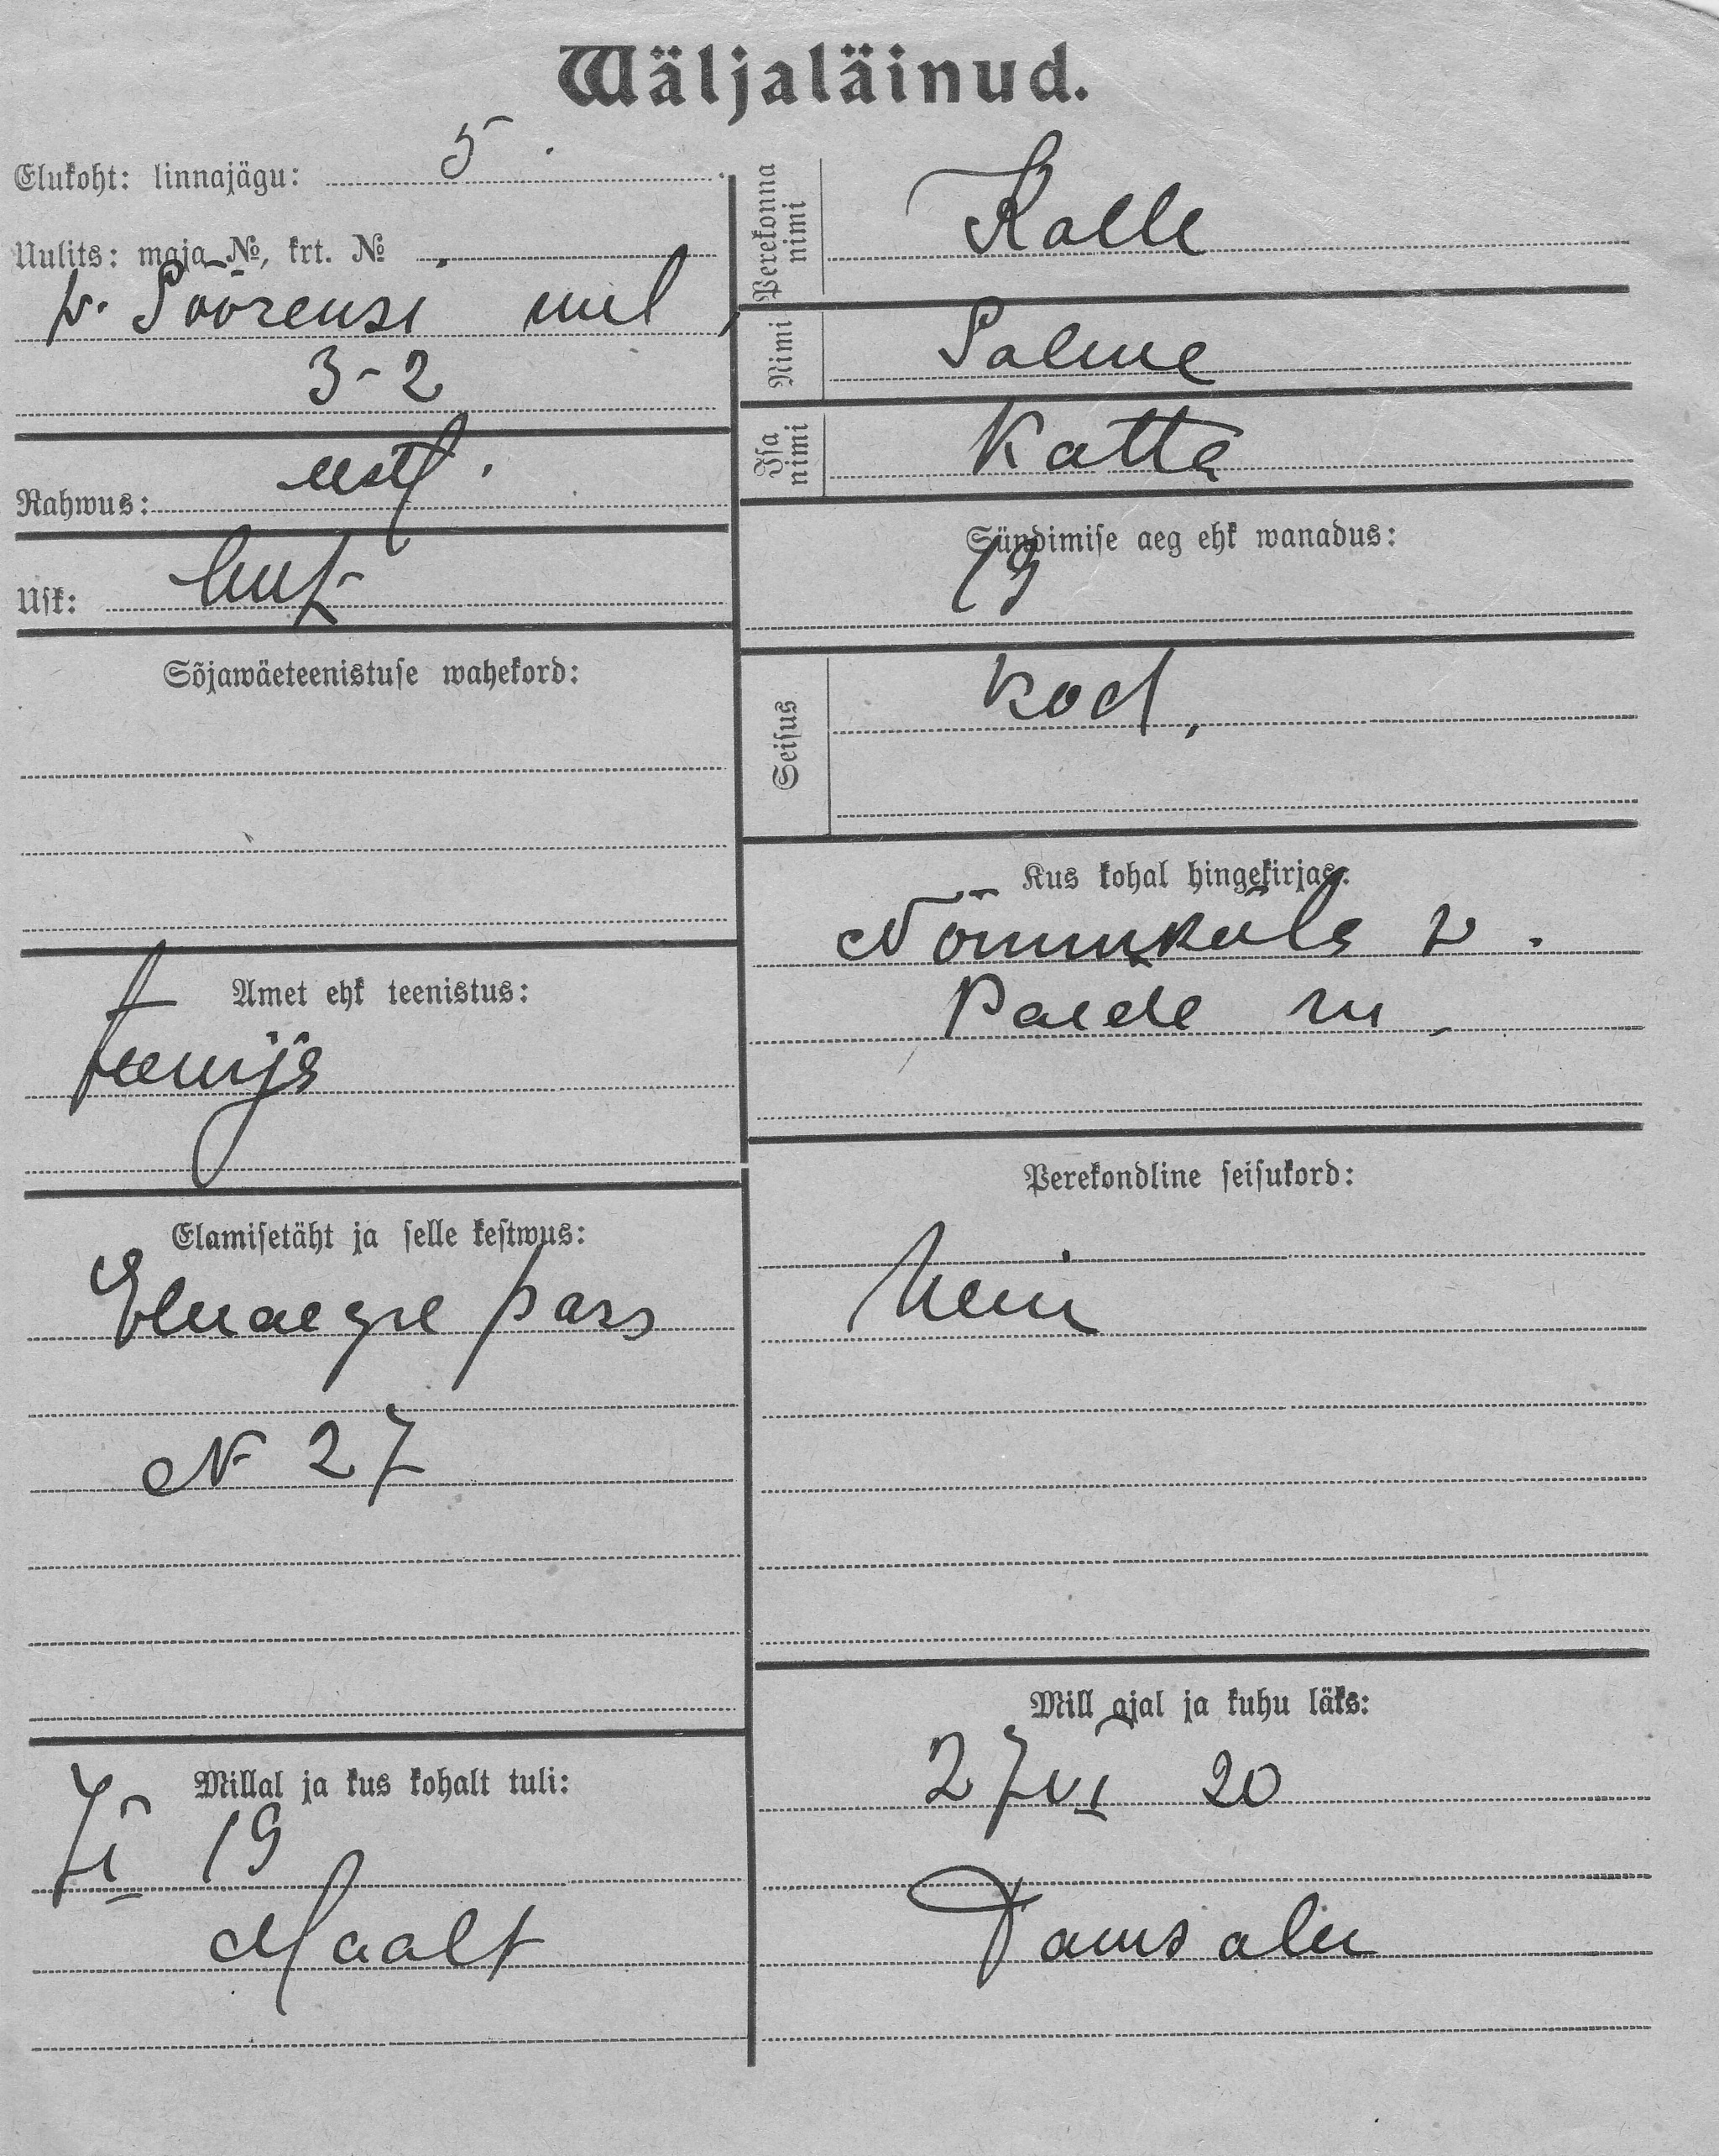 Wäljaläinud.
Elukoht: linnajägu: 5.
Uulits: maja №, krt. №
w. Söörensi uul,
3-2
Rahwus: eestl.
Usk: lut
Sõjawäeteenistuse wahekord:
Amet ehk teenistus:
teenija
Elamisetäht ja selle kestwus:
Eluaegne pass
N 27
Millal ja kus kohalt tuli:
19
Maalt
Perekonna nimi Kalle
Nimi Salme
Isa nimi
Sündimise aeg ehk wanadus:
19
Seisus kod,
Kus kohal hingekirjas:
Nõmmküla v.
Paide m.
Perekondline seisukord:
Neiu
Mill ajal ja kuhu läks:
27 VI 20
Tamsalu